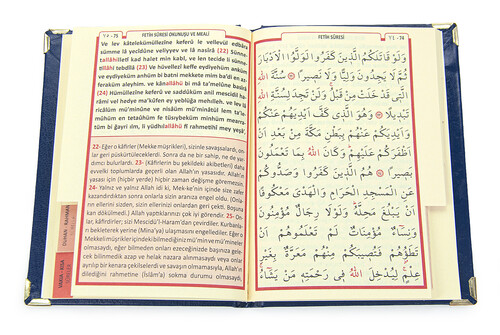 ٧٥ - 75
FETİH SÛRESİ OKUNUŞU VE MEALİ
Ve lev kâtelekümüllezîne keferû le vellevül edbâra
sümme lâ yecidûne veliyyen ve lâ nasîrâ (22) Sünne-
tallâhilletî kad halet min kabl, ve len tecide li sünne-
tillâhi tebdîlâ (23) Ve hüvellezî keffe eydiyehüm anküm
ve eydiyeküm anhüm bi batni mekkete mim ba'di en az-
feraküm aleyhim, ve kânallâhü bi mâ ta'melûne basîrâ
(24) Hümüllezîne keferû ve saddûküm anil mescidil ha-
râmi vel hedye ma'kûfen ey yeblüğa mehılleh, ve lev lâ
ricâlüm mü'minûne ve nisâüm mü'minâtül lem ta'le-
mûhüm en tetaûhüm fe tüsıybeküm minhüm mearra-
tüm bi ğayri ılm, li yüdhılallâhü fî rahmetihî mey yeşâ',
22- Eğer o kâfirler (Mekke müşrikleri), sizinle savaşsalardı, on-
lar geri püskürtüleceklerdi. Sonra da ne bir sahip, ne de yar-
dımcı bulurlardı. 23- (Kâfirlerin bu şekildeki akibetleri) daha
evvelki toplumlarda geçerli olan Allah'ın yasasıdır. Allah'ın
yasası için (hiçbir yerde) hiçbir zaman değişme göremezsin.
24- Yalnız ve yalnız Allah idi ki, Mek-ke'nin içinde size zafer
kazandırdıktan sonra onlarla sizin aranıza engel oldu. (Onla-
rın ellerini sizden, sizin ellerinizi onlardan geri çekti. Boşuna
kan dökülmedi.) Allah yaptıklarınızı çok iyi görendir. 25- On-
lar, kâfirdirler; sizi Mescidü'l-Haram'dan çevirdiler. Kurbanla-
rın bekleterek yerine (Mina'ya) ulaşmasını engellediler. Eğer o
Mekkeli müşrikler içindeki bilmediğiniz mü'min ve mü'mineler
olmasaydı, eğer bilmeden onları ezeceğinizde başınıza gele-
cek bilinmedik azap ve helak nazara alınmasaydı veya onlar
ayrılıp bir kenara çekilselerdi ve savaşın olmamasıyla, Allah'ın
dilediğini rahmetine (İslâm'a) sokma durumu olmasaydı,
DUHAN - RAHMAN
VAKIA - KISA
FETİH SÛRESİ
٧٤ - 74
وَلَوْ قَاتَلَكُمُ الَّذِينَ كَفَرُوا لَوَلَّوُا الْاَدْبَارَ
ثُمَّ لَا يَجِدُونَ وَلِيًّا وَلَا نَصِيرًا ۞ سُنَّةَ اللّٰهِ
الَّتِي قَدْ خَلَتْ مِنْ قَبْلُ وَلَنْ تَجِدَ لِسُنَّةِ اللّٰهِ
تَبْدِيلًا ۞ وَهُوَ الَّذِي كَفَّ اَيْدِيَهُمْ عَنْكُمْ
وَاَيْدِيَكُمْ عَنْهُمْ بِبَطْنِ مَكَّةَ مِنْ بَعْدِ اَنْ
اَظْفَرَكُمْ عَلَيْهِمْ وَكَانَ اللّٰهُ بِمَا تَعْمَلُونَ
بَصِيرًا ۞ هُمُ الَّذِينَ كَفَرُوا وَصَدُّوكُمْ
عَنِ الْمَسْجِدِ الْحَرَامِ وَالْهَدْيَ مَعْكُوفًا
اَنْ يَبْلُغَ مَحِلَّهُ وَلَوْلَا رِجَالٌ مُؤْمِنُونَ
وَنِسَاءٌ مُؤْمِنَاتٌ لَمْ تَعْلَمُوهُمْ اَنْ
تَطَؤُهُمْ فَتُصِيبَكُمْ مِنْهُمْ مَعَرَّةٌ بِغَيْرِ
عِلْمٍ لِيُدْخِلَ اللّٰهُ فِي رَحْمَتِهِ مَنْ يَشَاءُ